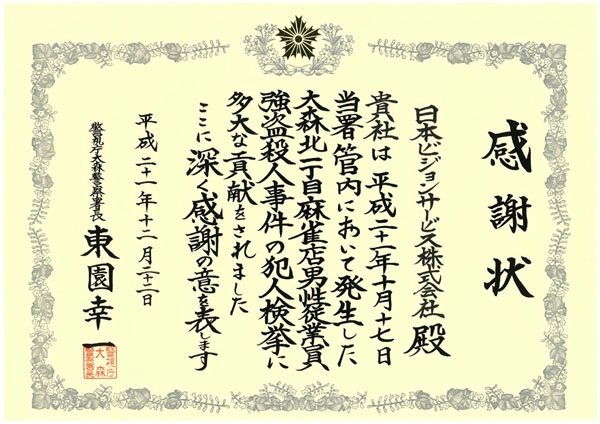 感謝状
日本ビジョンサービス株式会社 殿
貴社は平成二十一年十月十七日
当署管内において発生した
大森北一丁目麻雀店男性従業員
強盗殺人事件の犯人検挙に
多大な貢献をされました
ここに深く感謝の意を表します
平成二十一年十二月二十二日
警視庁大森警察署長 東園幸一
警視庁
大森
警察署長